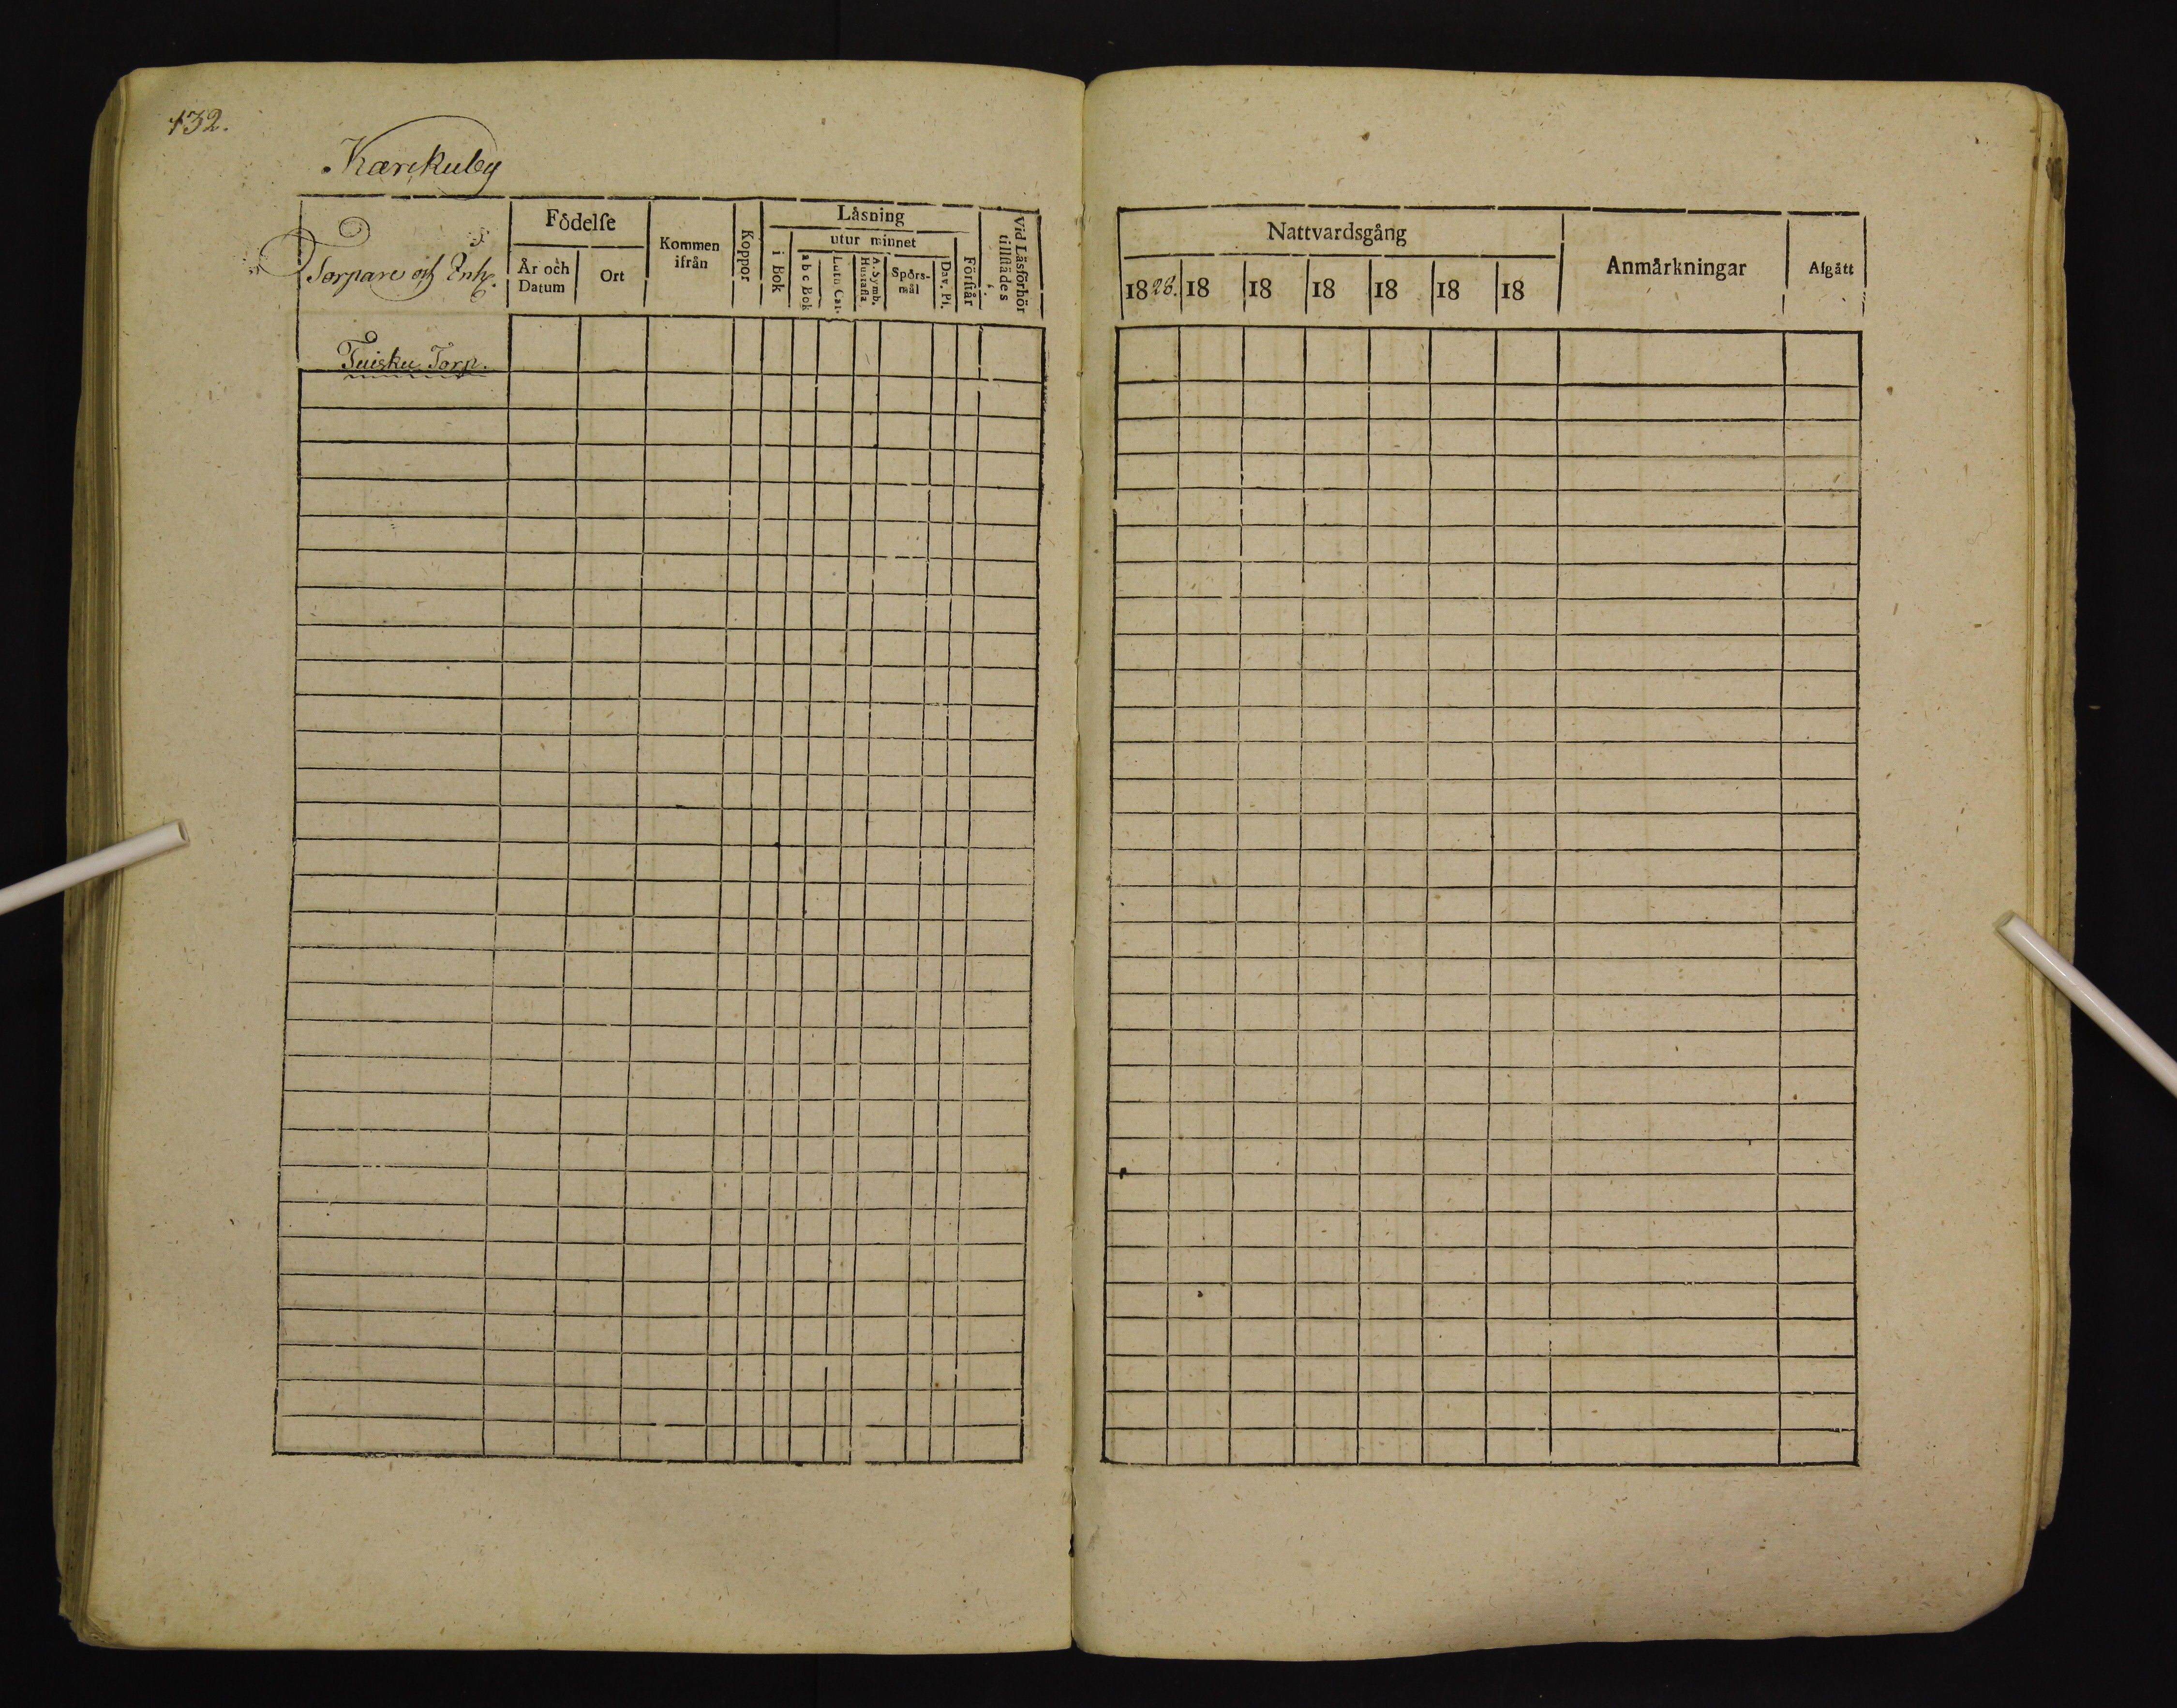 132.
Karckuby
Torpare och Enk.
Födelſe
År och Datum
Ort
Kommen ifrån
Koppor
Låsning
i Bok
utur minnet
a b c Bok
Luth Cat.
A. Symb. Huſtafla
Spörs-mål
Dav. Pſ.
Förſtår
Vid Läsförhör tillſtädes
Tuisku Torp.
Nattvardsgång
1828. 18 18 18 18 18 18
Anmårkningar
Afgått